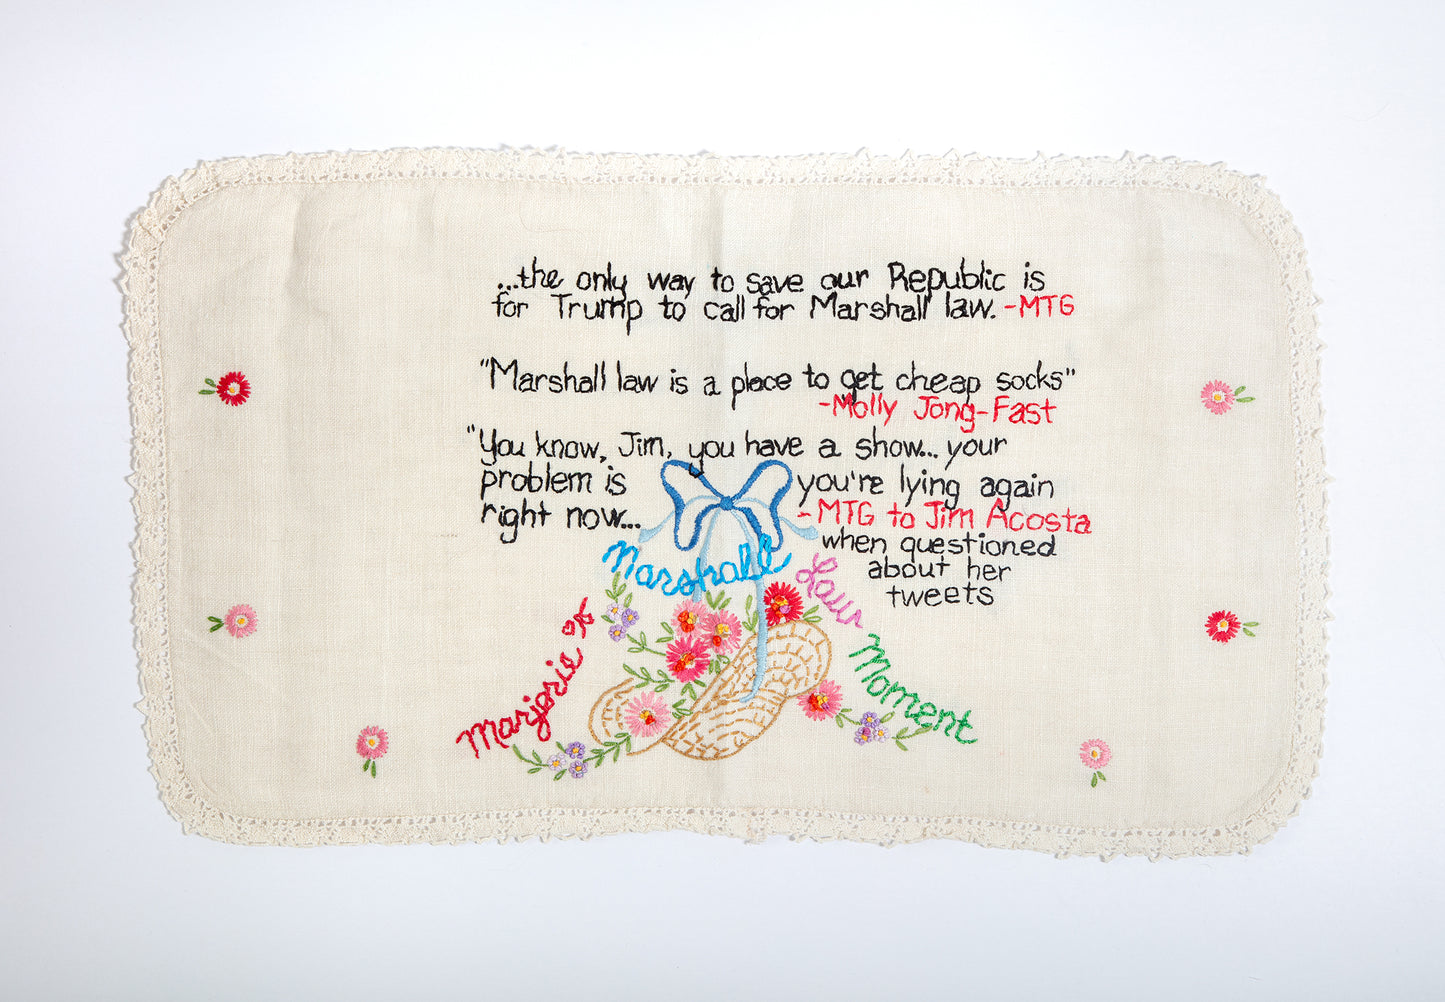 ...the only way to save our Republic is
for Trump to call for Marshall law. -MTG
"Marshall law is a place to get cheap socks"
-Molly Jong-Fast
"You know, Jim, you have a show... your
problem is you're lying again
right now... -MTG to Jim Acosta
when questioned
about her
tweets
Marjorie's
Marshall
Law
Moment